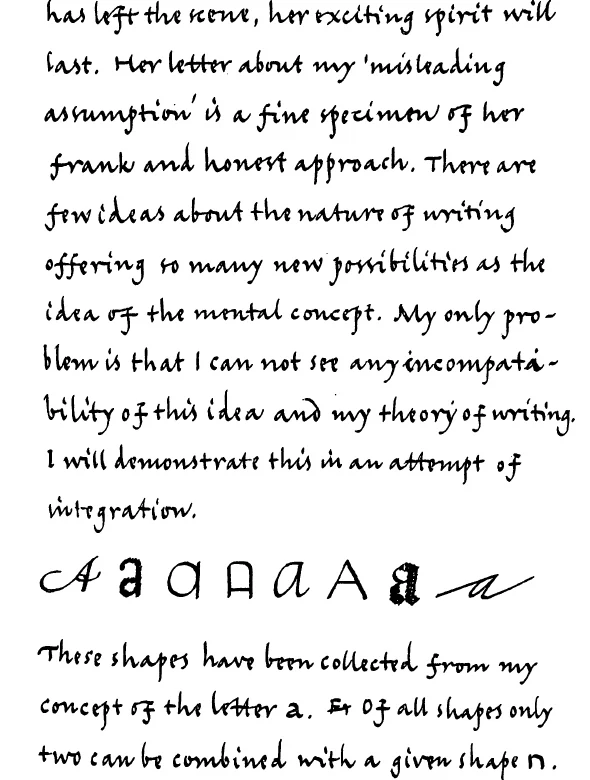 has left the scene, her exciting spirit will
last. Her letter about my 'misleading
assumption' is a fine specimen of her
frank and honest approach. There are
few ideas about the nature of writing
offering so many new possibilities as the
idea of the mental concept. My only pro-
blem is that I can not see any incompata-
bility of this idea and my theory of writing.
I will demonstrate this in an attempt of
integration.
A a a A a A a a
These shapes have been collected from my
concept of the letter a. Of all shapes only
two can be combined with a given shape n.